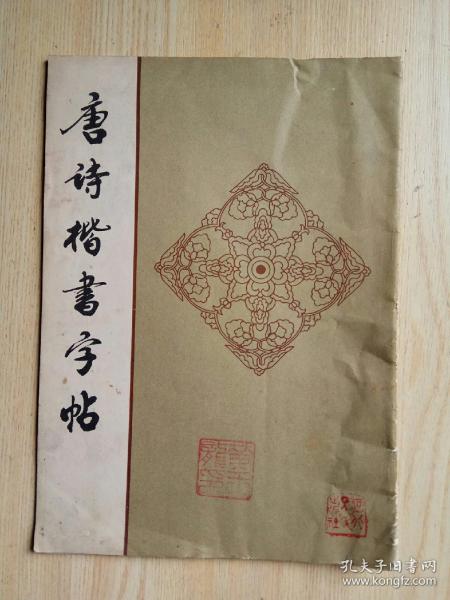 唐诗楷书字帖
孔夫子旧书网
www.kongfz.com